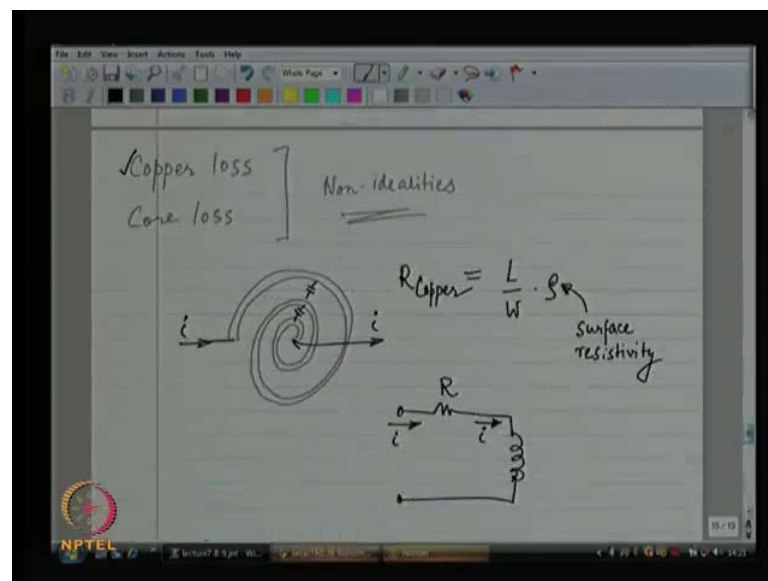 File Edit View Insert Actions Tools Help
Whole Page
✓Copper loss
Core loss
Non-idealities
i
i
R_Copper = L/W · ρ
surface
resistivity
R
i
i
15 / 15
NPTEL
14:21